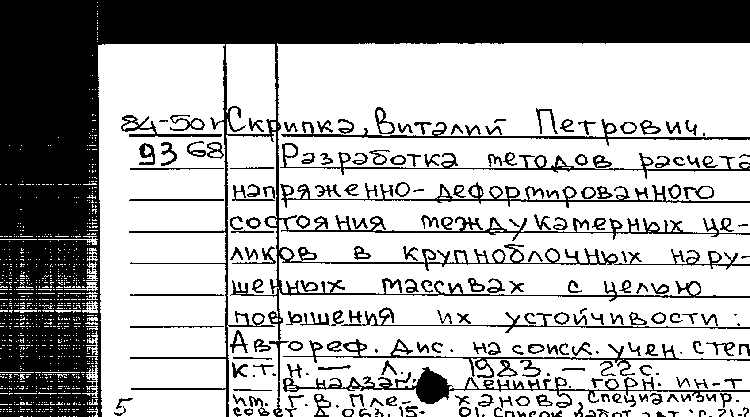 84-50г Скрипка, Виталий Петрович.
9368 Разработка методов расчета
напряженно-деформированного
состояния междукамерных це-
ликов в крупноблочных нару-
шенных массивах с целью
повышения их устойчивости:
Автореф. дис. на соиск. учен. степ
к.т.н. — Л., 1983. — 22с.
В надзаг.: Ленингр. горн. ин-т
им. Г.В. Плеханова, специализир.
5 совет Д 063.15. 01. Список работ авт.